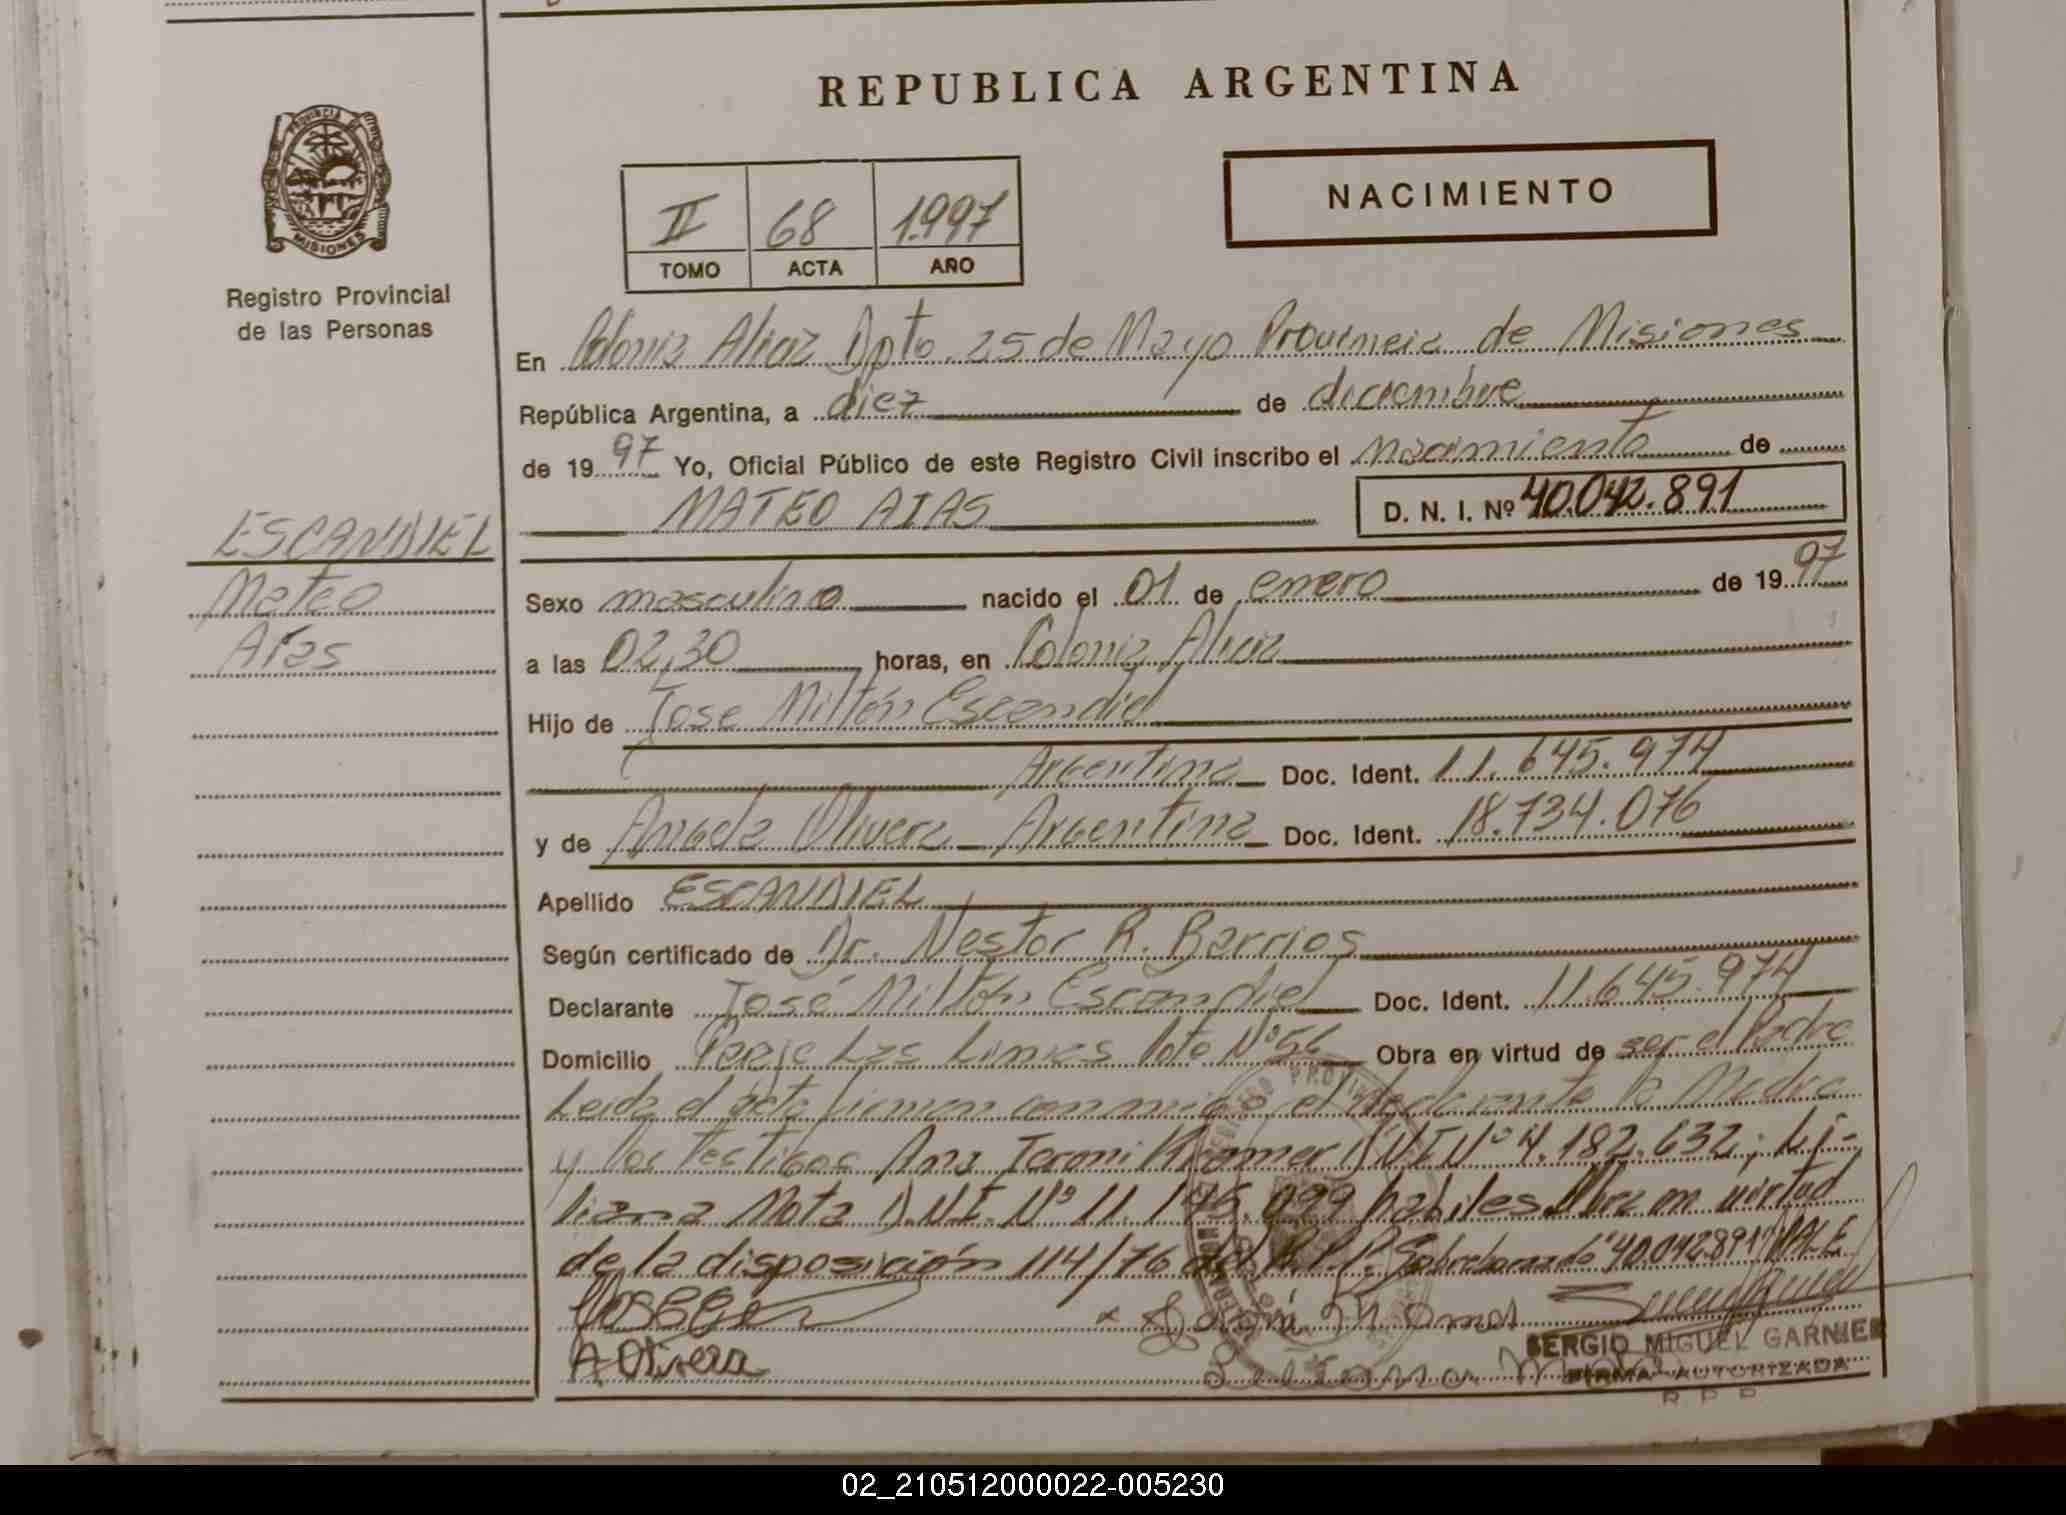 REPUBLICA ARGENTINA
PROVINCIA DE
MISIONES
Registro Provincial
de las Personas
NACIMIENTO
II 68 1.997
TOMO ACTA AÑO
En Colonia Alicia Dpto. 25 de Mayo Provincia de Misiones
República Argentina, a diez de diciembre
de 1997 Yo, Oficial Público de este Registro Civil inscribo el nacimiento de
MATEO AIAS D. N. I. Nº 40.042.891
ESCANDIEL
Mateo
Aias
Sexo masculino nacido el 01 de enero de 1997
a las 02,30 horas, en Colonia Alicia
Hijo de José Miltón Escandiel
Argentina Doc. Ident. 11.645.974
y de Angela Olivera - Argentina Doc. Ident. 18.734.076
Apellido ESCANDIEL
Según certificado de Dr. Nestor R. Barrios
Declarante José Miltón Escandiel Doc. Ident. 11.645.974
Domicilio Paraje Las Limas Lote Nº 56 Obra en virtud de ser el Padre
Leida el acta firman conmigo el declarante la Madre
y los testigos Ana Kromer D.N.I Nº 4.182.632; Li-
liana Mota D.N.I. Nº 11.175.099 habiles. Obra en virtud
de la disposición 114/76 del R.P.P. Sobreborrado "40.042.891" VALE
A Olivera
SERGIO MIGUEL GARNIER
FIRMA AUTORIZADA
R P P
02_210512000022-005230